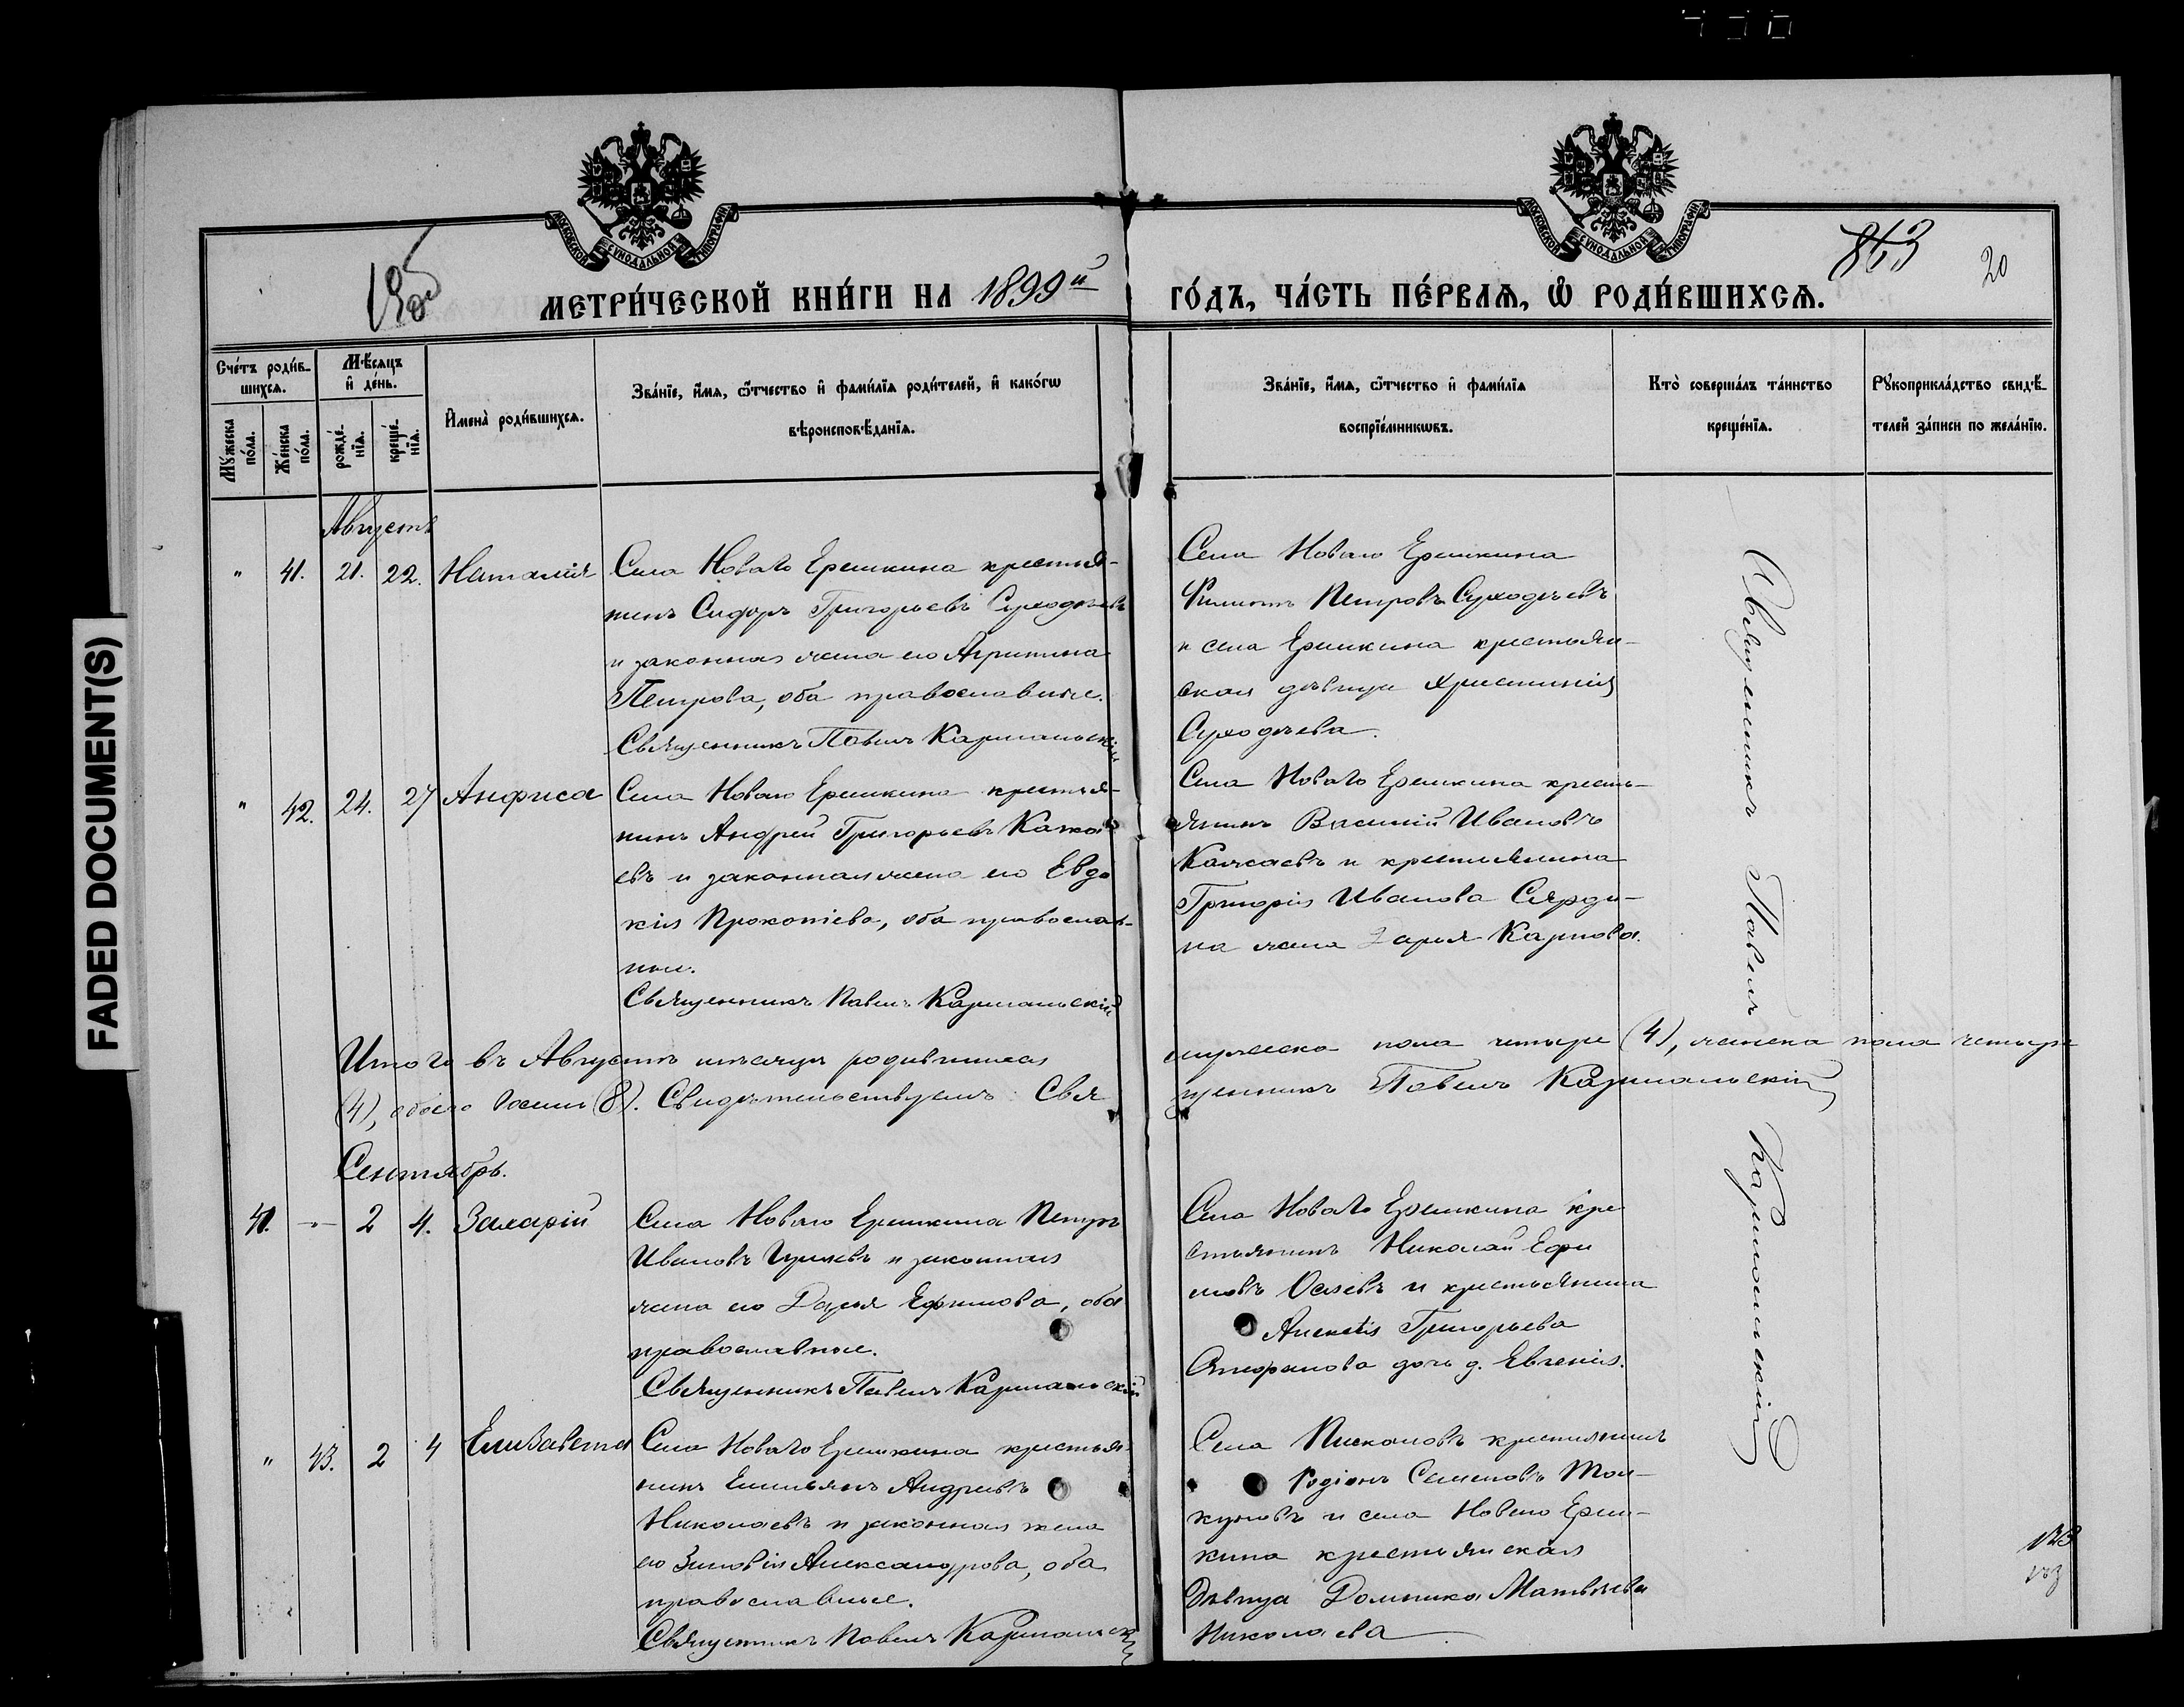 FADED DOCUMENT(S)
МОСКОВСКОЙ СѴНОДАЛЬНОЙ ТИПОГРАФІИ
МОСКОВСКОЙ СѴНОДАЛЬНОЙ ТИПОГРАФІИ
863
20
МЕТРИ́ЧЕСКОЙ КНИ́ГИ НА 1899й
ГО́ДЪ, ЧА́СТЬ ПЕ́РВАѦ, Ѽ РОДИ́ВШИХСѦ.
Сче́тъ роди́в-
шихсѧ.
Мꙋ́жеска
по́ла.
Же́нска
по́ла.
Мѣ́сѧцъ
и҆ де́нь.
рожде́-
нїѧ.
креще́-
нїѧ.
И҆мена̀ роди́вшихсѧ.
Зва́нїе, и҆́мѧ, ѻ҆́тчество и҆ фами́лїѧ роди́телей, и҆ како́гѡ
вѣроисповѣ́данїѧ.
Зва́нїе, и҆́мѧ, ѻ҆́тчество и҆ фами́лїѧ
воспрїе́мникѡвъ.
Кто̀ соверша́лъ та́инство
креще́нїѧ.
Рꙋкоприкла́дство свидѣ́-
телей за́писи по жела́нїю.
Августъ
" 41. 21. 22. Наталія
Села Новаго Ерешкина крестья-
нинъ Сидоръ Григорьевъ Суходѣевъ
и законная жена его Агрипина
Петрова, оба православные.
Священникъ Павелъ Кармальскій
Села Новаго Ерешкина
Филиппъ Петровъ Суходѣевъ
и села Ерешкина крестьян-
ская дѣвица Христинія
Суходѣева.
" 42. 24. 27 Анфиса
Села Новаго Ерешкина крестья-
нинъ Андрей Григорьевъ
евъ и законная жена его Евдо
кія Прокопіева, оба православ-
ные.
Священникъ Павелъ Кармальскій
Села Новаго Ерешкина кресть-
янинъ Василій Ивановъ
и крестьянина
Григорія Иванова
на жена Дарья Карпова.
Итого въ Августѣ мѣсяцѣ родившихся мужеска пола четыре (4), женска пола четыре
(4), обоего восемь (8). Свидѣтельствуемъ: Священникъ Павелъ Кармальскій
Сентябрь.
41. — 2 4. Захарій
Села Новаго Ерешкина Петръ
Ивановъ и законная
жена его Дарья Ефимова, оба
православные.
Священникъ Павелъ Кармальскій
Села Новаго Ерешкина кре
стьянинъ Николай Ефи
мовъ и крестьянина
Алексѣя Григорьева
дочь д. Евгенія.
" 43. 2 4 Елизавета
Села Новаго Ерешкина крестья-
нинъ Емельянъ Андреевъ
Николаевъ и законная жена
его Зиновія Александрова, оба
православные.
Священникъ Павелъ Кармальскій
Села крестьянинъ
Родіонъ Семеновъ
и села Новаго Ереш-
кина крестьянская
дѣвица Домника Матвѣева
Николаева
Священникъ Павелъ Кармальскій
123